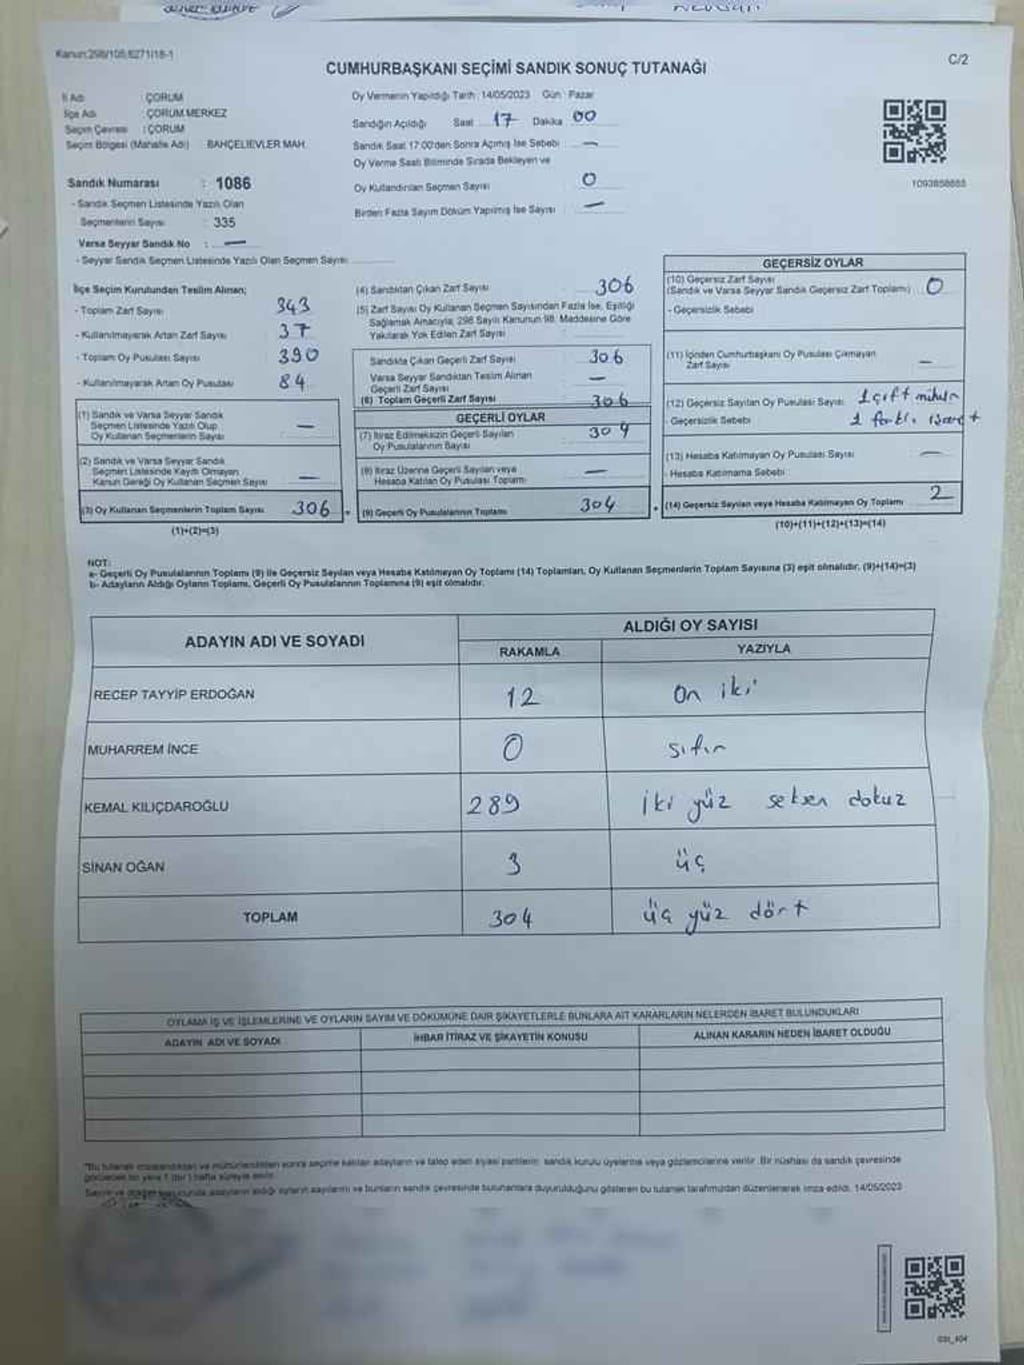 Kanun:298/105,6271/18-1
C/2
CUMHURBAŞKANI SEÇİMİ SANDIK SONUÇ TUTANAĞI
İl Adı : ÇORUM
İlçe Adı : ÇORUM MERKEZ
Seçim Çevresi : ÇORUM
Seçim Bölgesi (Mahalle Adı) BAHÇELİEVLER MAH.
Sandık Numarası : 1086
- Sandık Seçmen Listesinde Yazılı Olan
Seçmenlerin Sayısı : 335
Varsa Seyyar Sandık No : —
- Seyyar Sandık Seçmen Listesinde Yazılı Olan Seçmen Sayısı
Oy Vermenin Yapıldığı Tarih : 14/05/2023 Gün : Pazar
Sandığın Açıldığı Saat 17 Dakika 00
Sandık Saat 17:00'den Sonra Açılmış İse Sebebi : —
Oy Verme Saati Bitiminde Sırada Bekleyen ve
Oy Kullandırılan Seçmen Sayısı : 0
Birden Fazla Sayım Döküm Yapılmış İse Sayısı : —
1093858885
İlçe Seçim Kurulundan Teslim Alınan;
- Toplam Zarf Sayısı : 343
- Kullanılmayarak Artan Zarf Sayısı : 37
- Toplam Oy Pusulası Sayısı : 390
- Kullanılmayarak Artan Oy Pusulası : 84
(1) Sandık ve Varsa Seyyar Sandık
Seçmen Listesinde Yazılı Olup
Oy Kullanan Seçmenlerin Sayısı —
(2) Sandık ve Varsa Seyyar Sandık
Seçmen Listesinde Kaydı Olmayan
Kanun Gereği Oy Kullanan Seçmen Sayısı —
(3) Oy Kullanan Seçmenlerin Toplam Sayısı 306
(1)+(2)=(3)
(4) Sandıktan Çıkan Zarf Sayısı : 306
(5) Zarf Sayısı Oy Kullanan Seçmen Sayısından Fazla İse, Eşitliği
Sağlamak Amacıyla, 298 Sayılı Kanunun 98. Maddesine Göre
Yakılarak Yok Edilen Zarf Sayısı :
Sandıkta Çıkan Geçerli Zarf Sayısı : 306
Varsa Seyyar Sandıktan Teslim Alınan
Geçerli Zarf Sayısı —
(6) Toplam Geçerli Zarf Sayısı 306
GEÇERLİ OYLAR
(7) İtiraz Edilmeksizin Geçerli Sayılan
Oy Pusulalarının Sayısı 304
(8) İtiraz Üzerine Geçerli Sayılan veya
Hesaba Katılan Oy Pusulası Toplamı —
(9) Geçerli Oy Pusulalarının Toplamı 304
GEÇERSİZ OYLAR
(10) Geçersiz Zarf Sayısı
(Sandık ve Varsa Seyyar Sandık Geçersiz Zarf Toplamı) : 0
- Geçersizlik Sebebi :
(11) İçinden Cumhurbaşkanı Oy Pusulası Çıkmayan
Zarf Sayısı —
(12) Geçersiz Sayılan Oy Pusulası Sayısı : 1 çift mühür
- Geçersizlik Sebebi : 1 farklı işaret
(13) Hesaba Katılmayan Oy Pusulası Sayısı : —
- Hesaba Katılmama Sebebi :
(14) Geçersiz Sayılan veya Hesaba Katılmayan Oy Toplamı 2
(10)+(11)+(12)+(13)=(14)
NOT:
a- Geçerli Oy Pusulalarının Toplamı (9) ile Geçersiz Sayılan veya Hesaba Katılmayan Oy Toplamı (14) Toplamları, Oy Kullanan Seçmenlerin Toplam Sayısına (3) eşit olmalıdır. (9)+(14)=(3)
b- Adayların Aldığı Oyların Toplamı, Geçerli Oy Pusulalarının Toplamına (9) eşit olmalıdır.
ADAYIN ADI VE SOYADI
ALDIĞI OY SAYISI
RAKAMLA YAZIYLA
RECEP TAYYİP ERDOĞAN 12 on iki
MUHARREM İNCE 0 sıfır
KEMAL KILIÇDAROĞLU 289 iki yüz seksen dokuz
SİNAN OĞAN 3 üç
TOPLAM 304 üç yüz dört
OYLAMA İŞ VE İŞLEMLERİNE VE OYLARIN SAYIM VE DÖKÜMÜNE DAİR ŞİKAYETLERLE BUNLARA AİT KARARLARIN NELERDEN İBARET BULUNDUKLARI
ADAYIN ADI VE SOYADI İHBAR İTİRAZ VE ŞİKAYETİN KONUSU ALINAN KARARIN NEDEN İBARET OLDUĞU
"Bu tutanak imzalandıktan ve mühürlendikten sonra seçime katılan adayların ve talep eden siyasi partilerin sandık kurulu üyelerine veya gözlemcilerine verilir. Bir nüshası da sandık çevresinde
görülecek bir yere 1 (bir) hafta süreyle asılır.
adayların aldığı oyların sayılarını ve bunların sandık çevresinde bulunanlara duyurulduğunu gösteren bu tutanak tarafımızdan düzenlenerek imza edildi. 14/05/2023